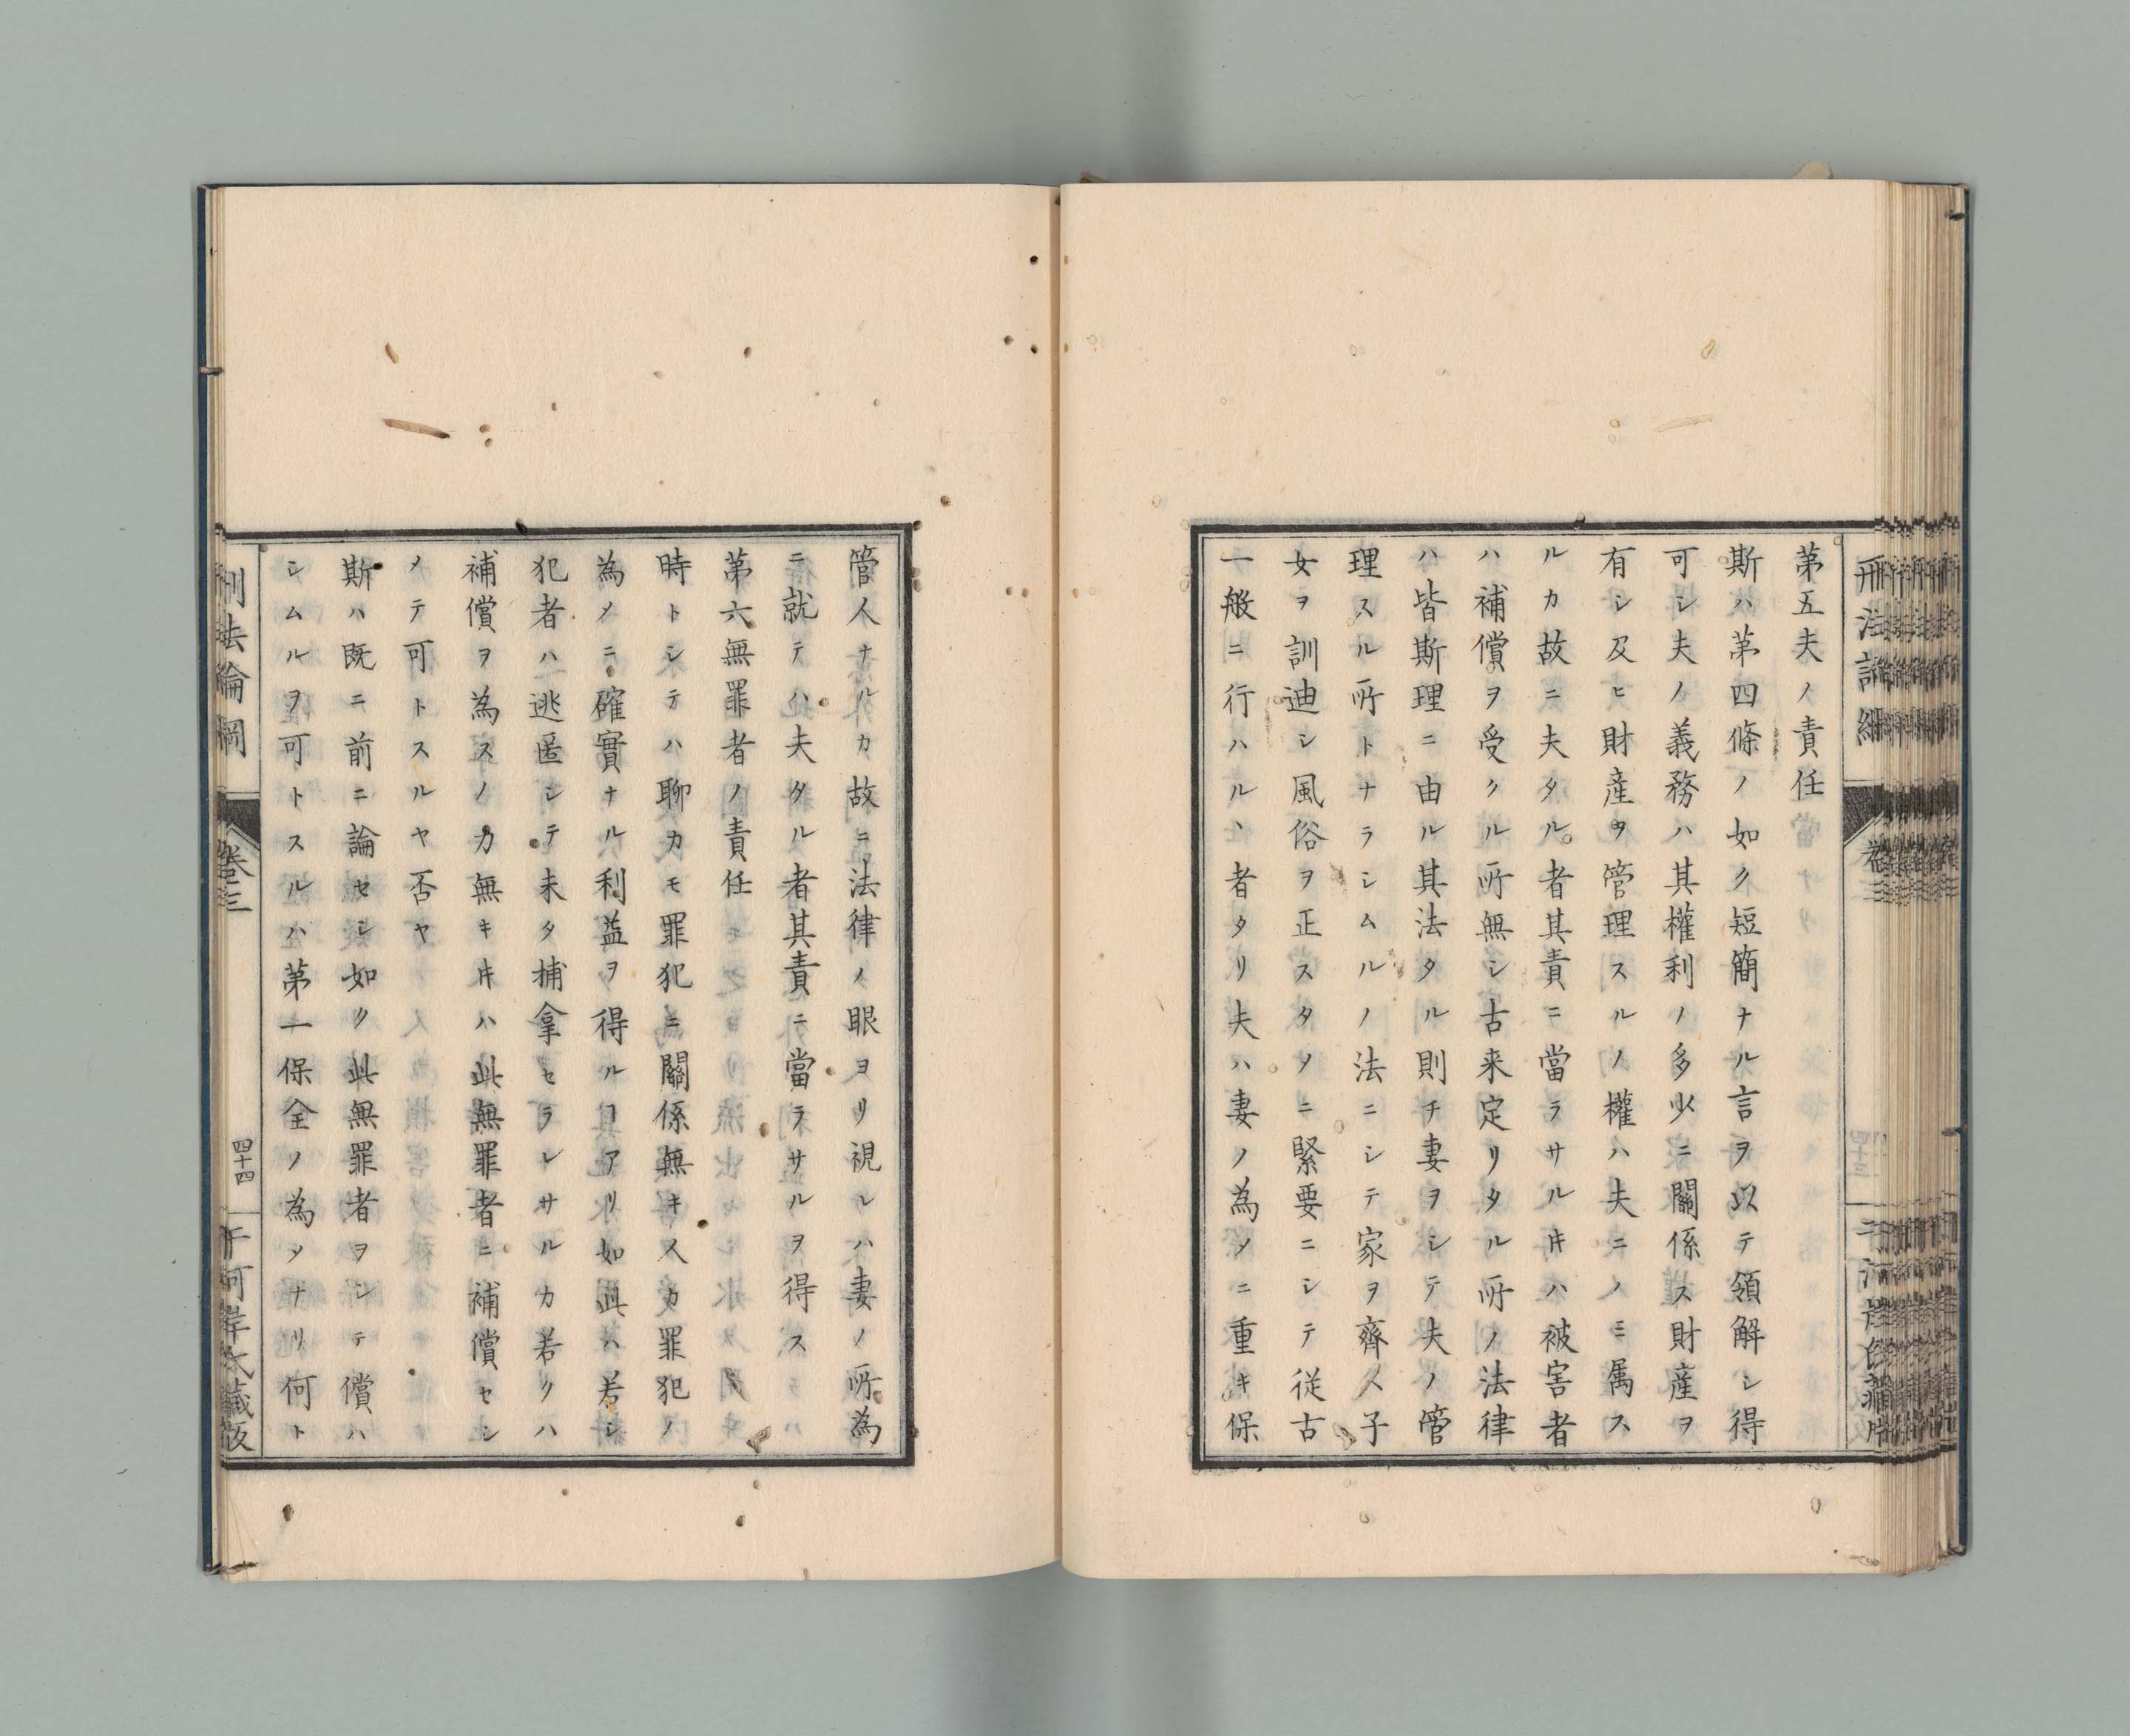 第五夫ノ責任
斯ハ第四條ノ如ク短簡ナル言ヲ以テ領解シ得
可シ夫ノ義務ハ其權利ノ多少ニ關係ス財産ヲ
有シ及ヒ財産ヲ管理スルノ權ハ夫ニノミ属ス
ルカ故ニ夫タル者其責ニ當ラサルキハ被害者
ハ補償ヲ受クル所無シ古来定リタル所ノ法律
ハ皆斯理ニ由ル其法タル則チ妻ヲシテ夫ノ管
理スル所トナラシムルノ法ニシテ家ヲ齊ヘ子
女ヲ訓迪シ風俗ヲ正スタメニ緊要ニシテ従古
一般ニ行ハルヽ者タリ夫ハ妻ノ為メニ重キ保
管人ナルカ故ニ法律ノ眼ヨリ視レハ妻ノ所為
ニ就テハ夫タル者其責ニ當ラサルヲ得ス
第六無罪者ノ責任
時トシテハ聊カモ罪犯ニ關係無キ人カ罪犯ノ
為メニ確實ナル利益ヲ得ルヿアリ如此ハ若シ
犯者ハ逃匿シテ未タ捕拿セラレサルカ若クハ
補償ヲ為スノ力無キ𪜈ハ此無罪者ニ補償セシ
メテ可トスルヤ否ヤ
斯ハ既ニ前ニ論セシ如ク此無罪者ヲシテ償ハ
シムルヲ可トスルハ第一保全ノ為メナリ何ト
刑法論綱
卷三
四十四